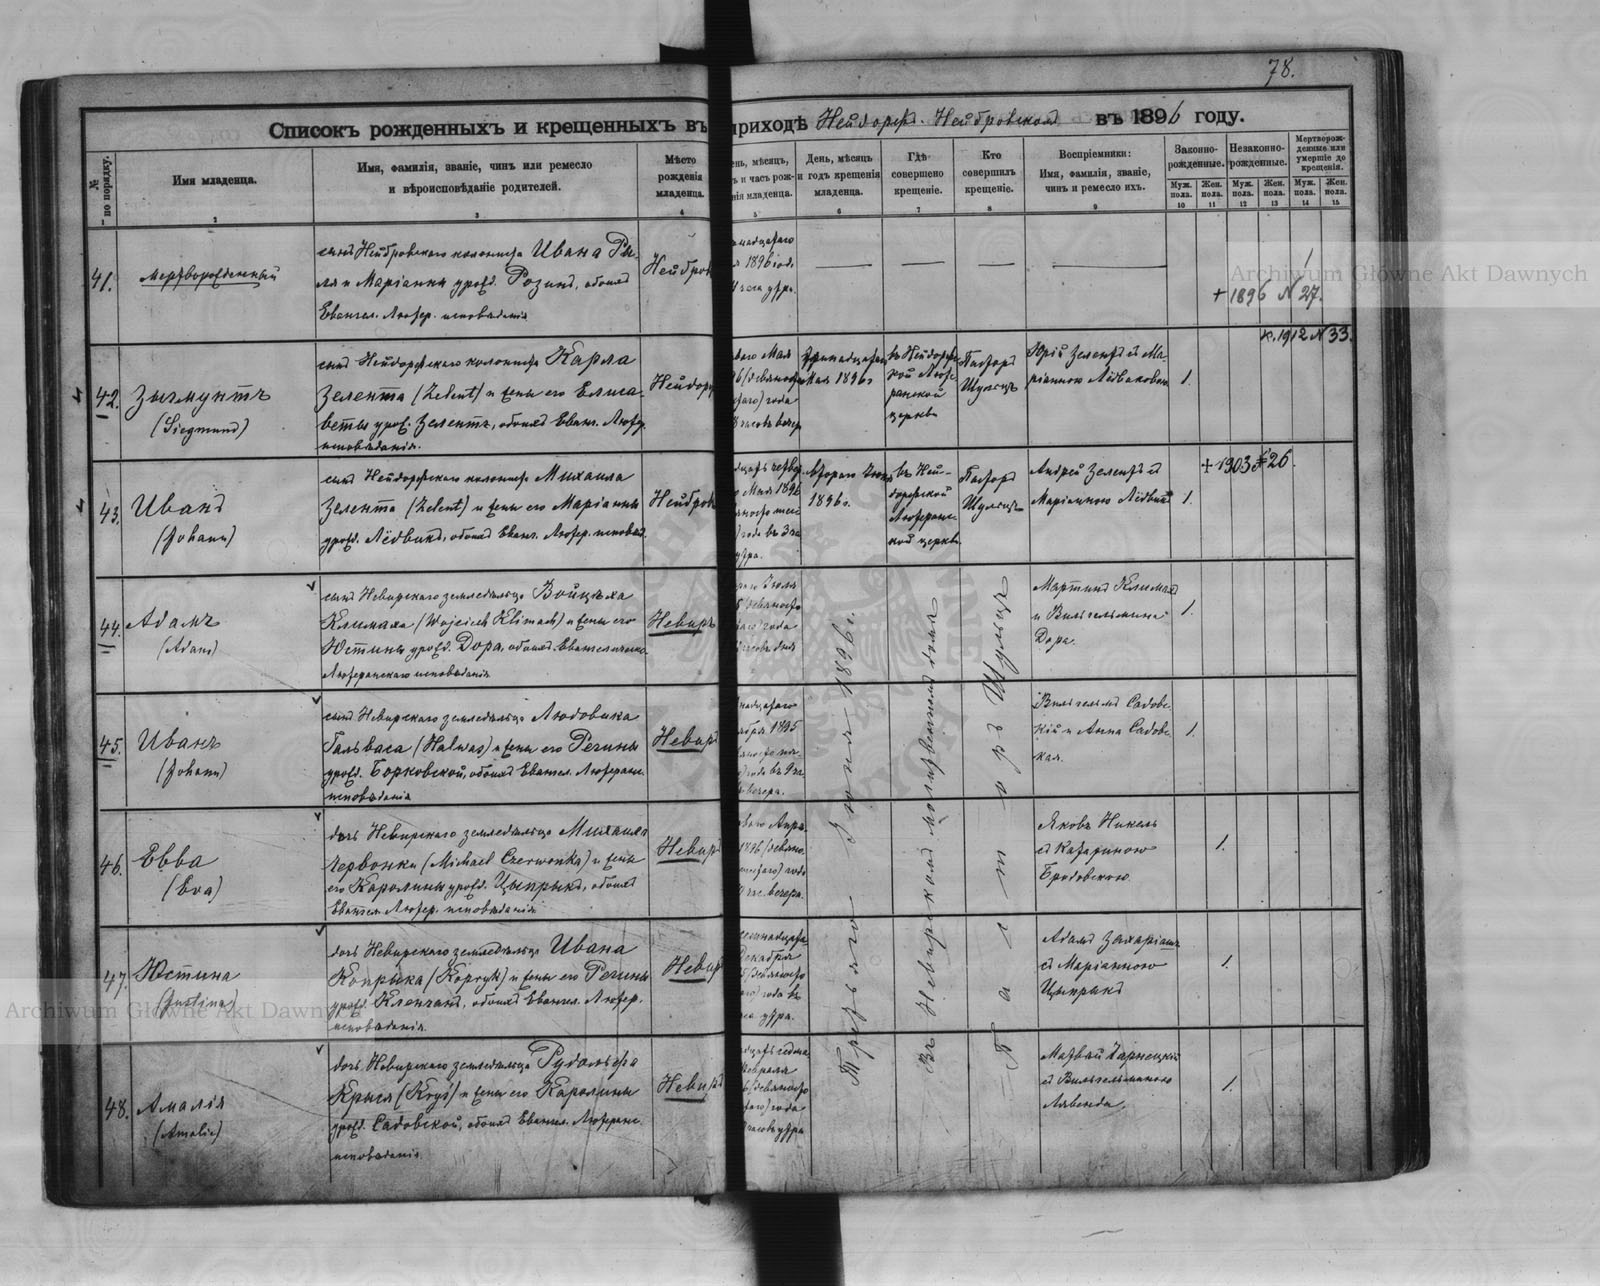 78.
Списокъ рожденныхъ и крещенныхъ въ приходѣ Нейдорф. Нейбровскомъ въ 1896 году.
№ по порядку.
Имя младенца.
Имя, фамилія, званіе, чинъ или ремесло
и вѣроисповѣданіе родителей.
Мѣсто
рожденія
младенца.
ень, мѣсяцъ,
ъ и часъ рож-
нія младенца.
День, мѣсяцъ
и годъ крещенія
младенца.
Гдѣ
совершено
крещеніе.
Кто
совершилъ
крещеніе.
Воспріемники:
Имя, фамилія, званіе,
чинъ и ремесло ихъ.
Законно-
рожденные.
Незаконно-
рожденные.
Мертворож-
денные или
умершіе до
крещенія.
Муж. пола. Жен. пола. Муж. пола. Жен. пола. Муж. пола. Жен. пола.
1 2 3 4 5 6 7 8 9 10 11 12 13 14 15
41.
мертворожденный
сынъ Нейбровскаго колониста Ивана Ры-
ля и Маріанны урожд. Розинъ, обоихъ
Евангел. Лютер. исповѣданія
Нейбров
надцатаго
я 1896 год.
часа утра.
1
+ 1896 N 27.
42.
Зыгмунтъ
(Siegmund)
сынъ Нейдорфскаго колониста Карла
Зелента (Zelent) и жены его Елиса-
веты урож. Зелентъ, обоихъ Еванг. Лютер.
исповѣданія.
Нейдорф
ваго Мая
96 (девяносто
таго) года
часовъ вечер
Тринадцатаго
Мая 1896 г
въ Нейдорфс-
кой Люте-
ранской
церкви
Пасторъ
Шульцъ
Юрій Зелентъ съ Ма-
ріанною Лёдвиковою
1.
к. 1912 N 33.
43.
Иванъ
(Johann)
сынъ Нейдорфскаго колониста Михаила
Зелента (Zelent) и жены его Маріанны
урожд. Лёдвикъ, обоихъ Еванг. Лютер. исповѣд.
Нейбров
дцать четвер
о Мая 1896
вяносто шес
) года въ 3 ча
утра.
Втораго Іюня
1896 г.
въ Ней-
дорфской
Лютеранс-
кой церкви
Пасторъ
Шульцъ
Андрей Зелентъ съ
Маріанною Лёдвикъ
1.
+ 1903 № 26.
44.
Адамъ
(Adam)
сынъ Невирскаго земледѣльца Войцѣха
Климаха (Wojciech Klimach) и жены его
Юстины урожд. Дора, обоихъ Евангелическо-
Лютеранскаго исповѣданія
Невиръ
Іюля
(девяносто
таго) года
часовъ дня
Мартинъ Климахъ
и Вильгельмина
Дора.
1.
45.
Иванъ
(Johann)
сынъ Невирскаго земледѣльца Людовика
Гальваса (Halwas) и жены его Регины
урожд. Борковской, обоихъ Евангел. Лютеранс.
исповѣданія
Невир
надцатаго
ября 1895
вяносто пя
) года въ 9 ча
вечера.
Вильгельмъ Садовс-
кій и Анна Садовс-
кая.
1.
46.
Евва
(Eva)
дочь Невирскаго земледѣльца Михаила
Червонки (Michael Czerwonka) и жены
его Каролины урожд. Цыпрыкъ, обоихъ
Евангел. Лютер. исповѣданія
Невир
ваго Апрѣ
1896 (девяно
шестаго) года
час. вечера.
Яковъ Никель
съ Катариною
Бродовскою.
1.
47.
Юстина
(Justina)
дочь Невирскаго земледѣльца Ивана
Копрыка (Kopryk) и жены его Регины
урожд. Клончакъ, обоихъ Евангел. Лютер.
исповѣданія.
Невир
семнадцата
Декабря
5 (девяносто
таго) года въ
са утра.
Адамъ Захаріашъ
съ Маріанною
Цыпрыкъ
1.
48.
Амалія
(Amalie)
дочь Невирскаго земледѣльца Рудольфа
Крыся (Kryś) и жены его Каролины
урожд. Садовской, обоихъ Евангел. Лютеранс.
исповѣданія.
Невир
дцать седьма
Февраля
6 (девяносто
таго) года
часовъ утра
Матвѣй Чарнецкій
съ Вильгельминою
1.
Третьяго Іюня 1896 г.
Въ Невирскомъ молитвенномъ домѣ
Пасторъ Шульцъ
Archiwum Główne Akt Dawnych
Archiwum Główne Akt Dawnych